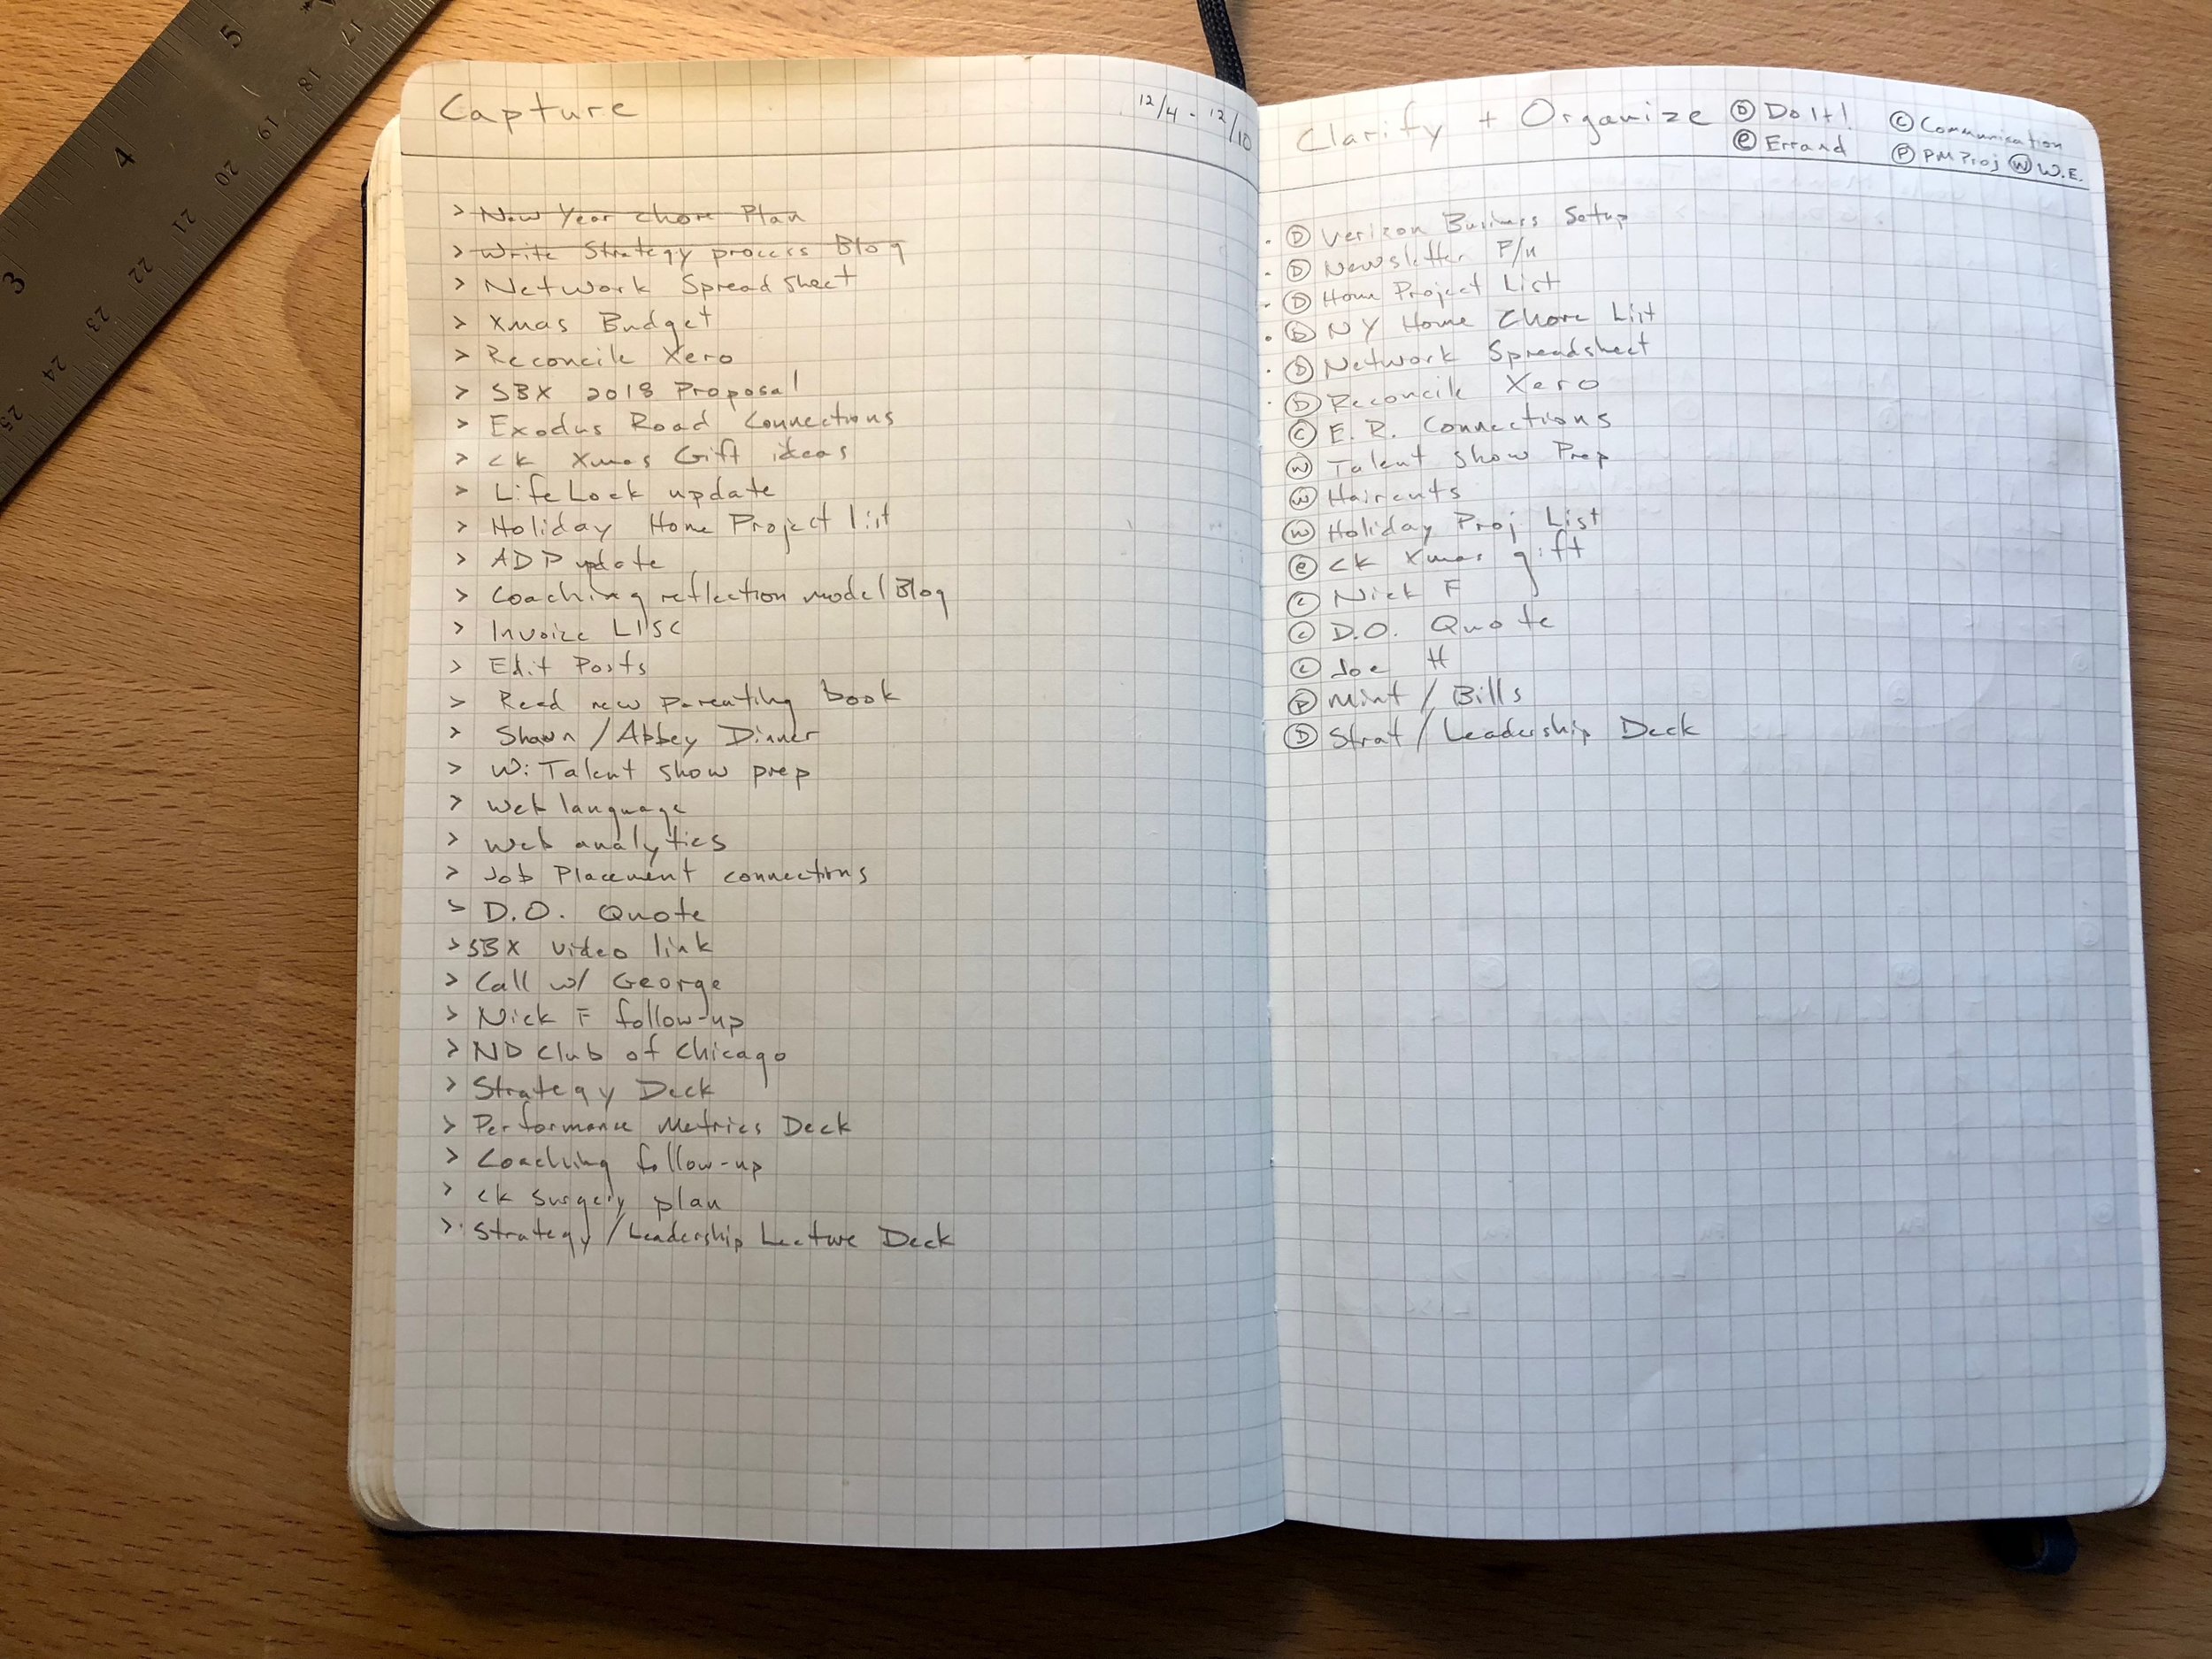 Capture 12/4 - 12/10
> New Year chore Plan
> Write Strategy process Blog
> Network Spreadsheet
> Xmas Budget
> Reconcile Xero
> SBX 2018 Proposal
> Exodus Road Connections
> ck Xmas Gift ideas
> LifeLock update
> Holiday Home Project list
> ADP update
> Coaching reflection model Blog
> Invoice LISC
> Edit Posts
> Read new parenting book
> Shawn / Abbey Dinner
> W: Talent show prep
> Web language
> Web analytics
> Job Placement connections
> D.O. Quote
> SBX video link
> Call w/ George
> Nick F follow-up
> ND Club of Chicago
> Strategy Deck
> Performance Metrics Deck
> Coaching follow-up
> ck surgery plan
> Strategy / Leadership Lecture Deck
Clarify + Organize
Ⓓ Do It! Ⓒ Communication
ⓔ Errand Ⓟ PM Proj Ⓦ W.E.
· Ⓓ Verizon Business Setup
· Ⓓ Newsletter F/u
· Ⓓ Home Project List
· Ⓓ NY Home Chore List
· Ⓓ Network Spreadsheet
· Ⓓ Reconcile Xero
Ⓒ E.R. Connections
Ⓦ Talent show Prep
Ⓦ Haircuts
Ⓦ Holiday Proj List
ⓔ ck Xmas gift
Ⓒ Nick F
Ⓒ D.O. Quote
Ⓒ Joe H
Ⓟ Mint / Bills
Ⓓ Strat / Leadership Deck
3
4
5
17
18
19
20
21
22
23
24
25